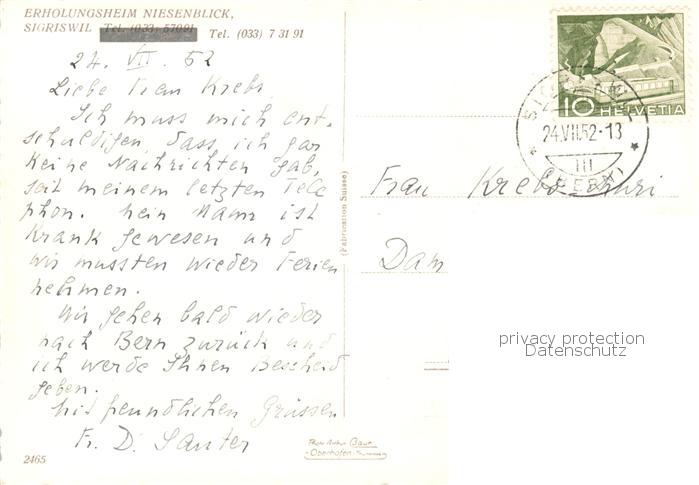 ERHOLUNGSHEIM NIESENBLICK,
SIGRISWIL Tel. (033) 57091 Tel. (033) 7 31 91
24. VII. 52
Liebe Frau Krebs,
Ich muss mich ent-
schuldigen, dass ich gar
keine Nachrichten gab,
seit meinem letzten Tele
phon. Mein Mann ist
krank gewesen und
wir mussten wieder Ferien
nehmen.
Wir gehen bald wieder
nach Bern zurück und
ich werde Ihnen Bescheid
geben.
Mit freundlichen Grüssen
Fr. D. Sauter
2465
(Fabrication Suisse)
Photo Arthur Baur
Oberhofen
10 HELVETIA
24.VII.52-13
III
(BERN)
Frau Krebs
Dam
privacy protection
Datenschutz